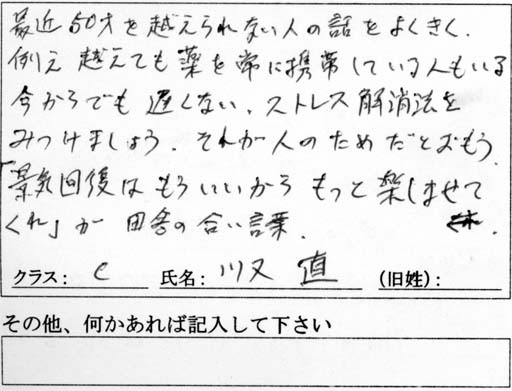 最近50才を越えられない人の話をよくきく.
例え 越えても 薬を常に携帯している人もいる
今からでも遅くない、ストレス解消法を
みつけましょう. それが人のためだとおもう.
「景気回復はもういいから もっと楽しませて
くれ」が 田舎の合い言葉.
クラス: C 氏名: 川又 直 (旧姓):
その他、何かあれば記入して下さい